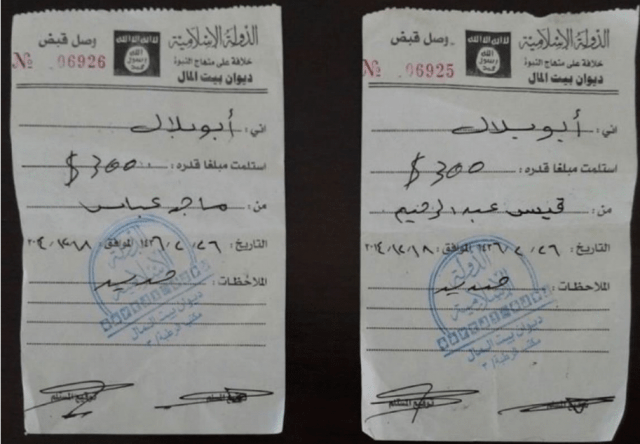 الدولة الإسلامية
خلافة على منهاج النبوة
ديوان بيت المال
لا اله الا الله
الله
رسول
محمد
وصل قبض
№ 06926
اني: أبو بلال
استلمت مبلغا قدره: 300 $
من: ماجد عباس
التاريخ: ٢٦ / ٢ / ١٤٣٦ الموافق: ١٨ / ١٢ / ٢٠١٤
الملاحظات:
الدولة
الإسلامية
ديوان بيت المال
توقيع المستلم
الدولة الإسلامية
خلافة على منهاج النبوة
ديوان بيت المال
لا اله الا الله
الله
رسول
محمد
وصل قبض
№ 06925
اني: أبو بلال
استلمت مبلغا قدره: 300 $
من: قيس عبد الرحيم
التاريخ: ٢٦ / ٢ / ١٤٣٦ الموافق: ١٨ / ١٢ / ٢٠١٤
الملاحظات:
الدولة
الإسلامية
ديوان بيت المال
توقيع المستلم